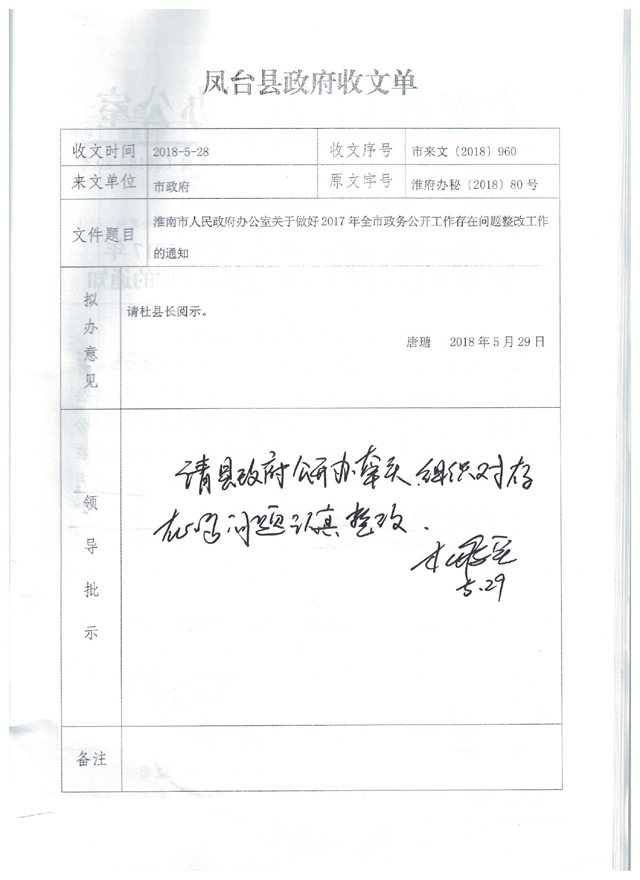 凤台县政府收文单
收文时间 2018-5-28 收文序号 市来文（2018）960
来文单位 市政府 原文字号 淮府办秘（2018）80号
文件题目 淮南市人民政府办公室关于做好2017年全市政务公开工作存在问题整改工作
的通知
拟办意见
请杜县长阅示。
唐瑭 2018年5月29日
领导批示
请县政府公开办牵头,组织对存
在的问题认真整改.
5.29
备注